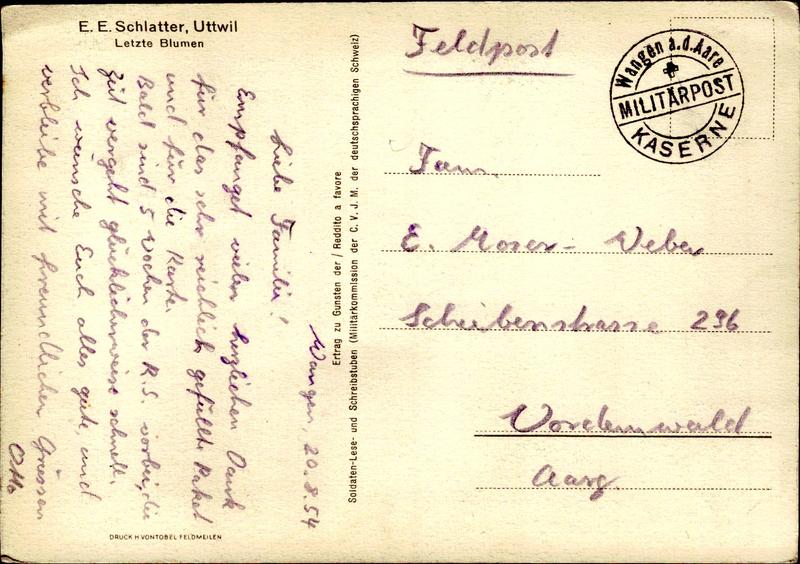 E. E. Schlatter, Uttwil
Letzte Blumen
Wangen, 20.8.54
Liebe Familie!
Empfanget vielen herzlichen Dank
für das sehr reichlich gefüllte Paket
und für die Karte.
Bald sind 5 Wochen der R.S. vorbei, die
Zeit vergeht glücklicherweise schnell.
Ich wünsche Euch alles gute, und
verbleibe mit freundlichen Grüssen
Otto
DRUCK H VONTOBEL FELDMEILEN
Ertrag zu Gunsten der / Reddito a favore
Soldaten-Lese- und Schreibstuben (Militärkommission der C. V. J. M. der deutschsprachigen Schweiz)
Feldpost
Wangen a.d. Aare
MILITÄRPOST
KASERNE
Fam.
E. Moser - Weber
Scheibenstrasse 296
Vordemwald
Aarg.